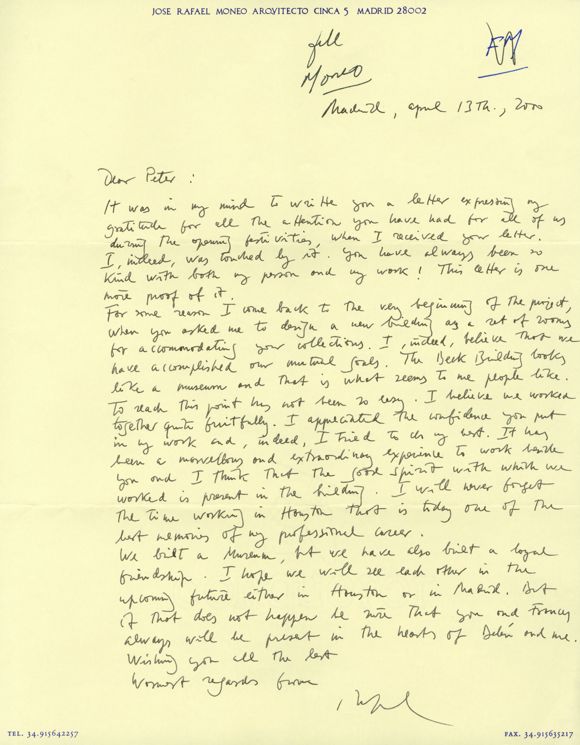 JOSE RAFAEL MONEO ARQVITECTO CINCA 5 MADRID 28002
file
Moneo
Madrid, april 13Th., 2000
Dear Peter :
It was in my mind to write you a letter expressing my
gratitude for all the attention you have had for all of us
during the opening festivities, when I received your letter.
I, indeed, was touched by it. You have always been so
kind with both my person and my work! This letter is one
more proof of it.
For some reason I come back to the very beginning of the project,
when you asked me to design a new building as a set of rooms
for accommodating your collections. I, indeed, believe that we
have accomplished our mutual goals. The Beck Building looks
like a museum and that is what seems to me people like.
To reach this point has not been so easy. I believe we worked
together quite fruitfully. I appreciated the confidence you put
in my work and, indeed, I tried to do my best. It has
been a marvellous and extraordinary experience to work beside
you and I think that the good spirit with which we
worked is present in the building. I will never forget
the time working in Houston that is today one of the
best memories of my professional career.
We built a Museum, but we have also built a loyal
friendship. I hope we will see each other in the
upcoming future either in Houston or in Madrid. But
if that does not happen be sure that you and Frances
always will be present in the hearts of Belén and me.
Wishing you all the best
Warmest regards from
Rafael
TEL. 34.915642257
FAX. 34.915635217